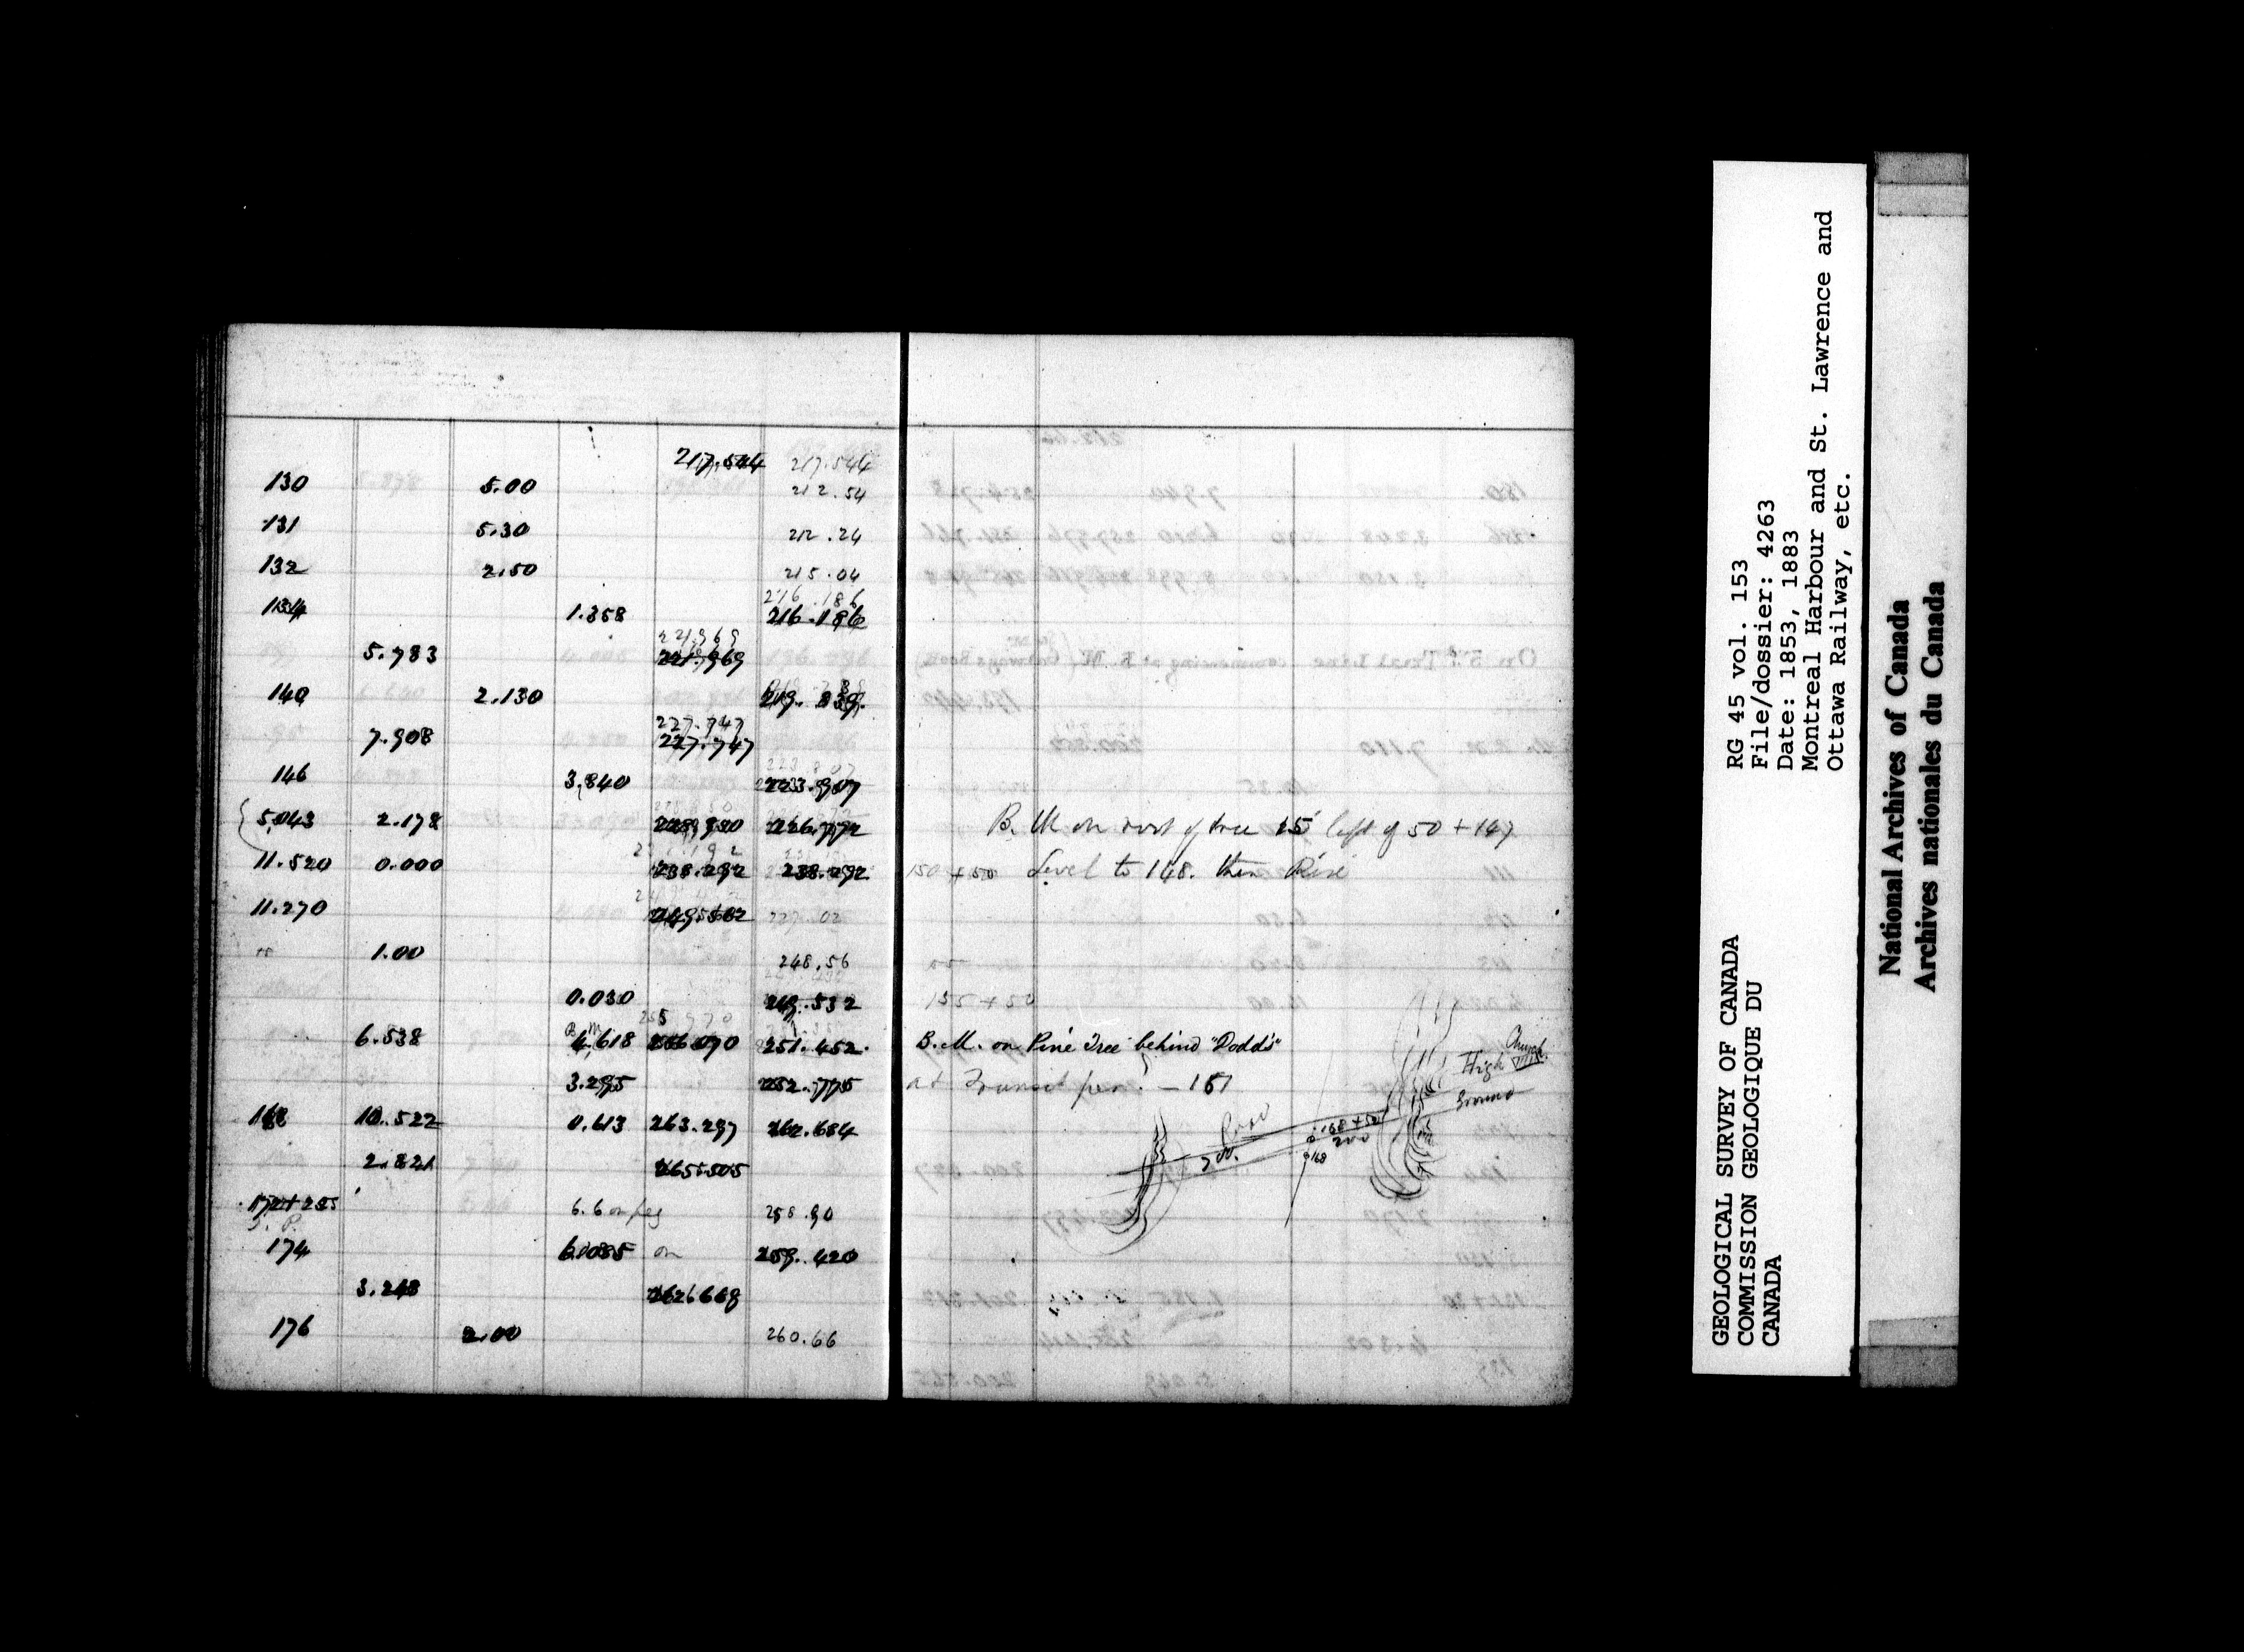 217.544 217.544
130 5.00 212.54
131 5.30 212.24
132 2.50 215.04
216.186
134 1.358 216.186
221.969
5.783 221.969
140 2.130 219.839
227.747
7.908 227.747
146 3.840 223.907
5.043 2.178 226.772
11.520 0.000 238.292 238.292
11.270 249.562
1.00 248.56
0.030 249.532
6.538 B.M. 4.618 256.070 251.452
3.295 252.775
168 10.522 0.613 263.297 262.684
2.821 265.505
6.6 on peg 258.90
174 6.085 on 259.420
3.248 262.668
176 2.00 260.66
B. M on root of tree 15 left of 50 + 147
150 + 50 Level to 148. then Rise
155 + 50
B.M. on Pine Tree behind "Dodds"
at Transit – 161
Church
High
Ground
Road
168+50
200
168
200.
RG 45 vol. 153
File/dossier: 4263
Date: 1853, 1883
Montreal Harbour and St. Lawrence and
Ottawa Railway, etc.
GEOLOGICAL SURVEY OF CANADA
COMMISSION GEOLOGIQUE DU
CANADA
National Archives of Canada
Archives nationales du Canada